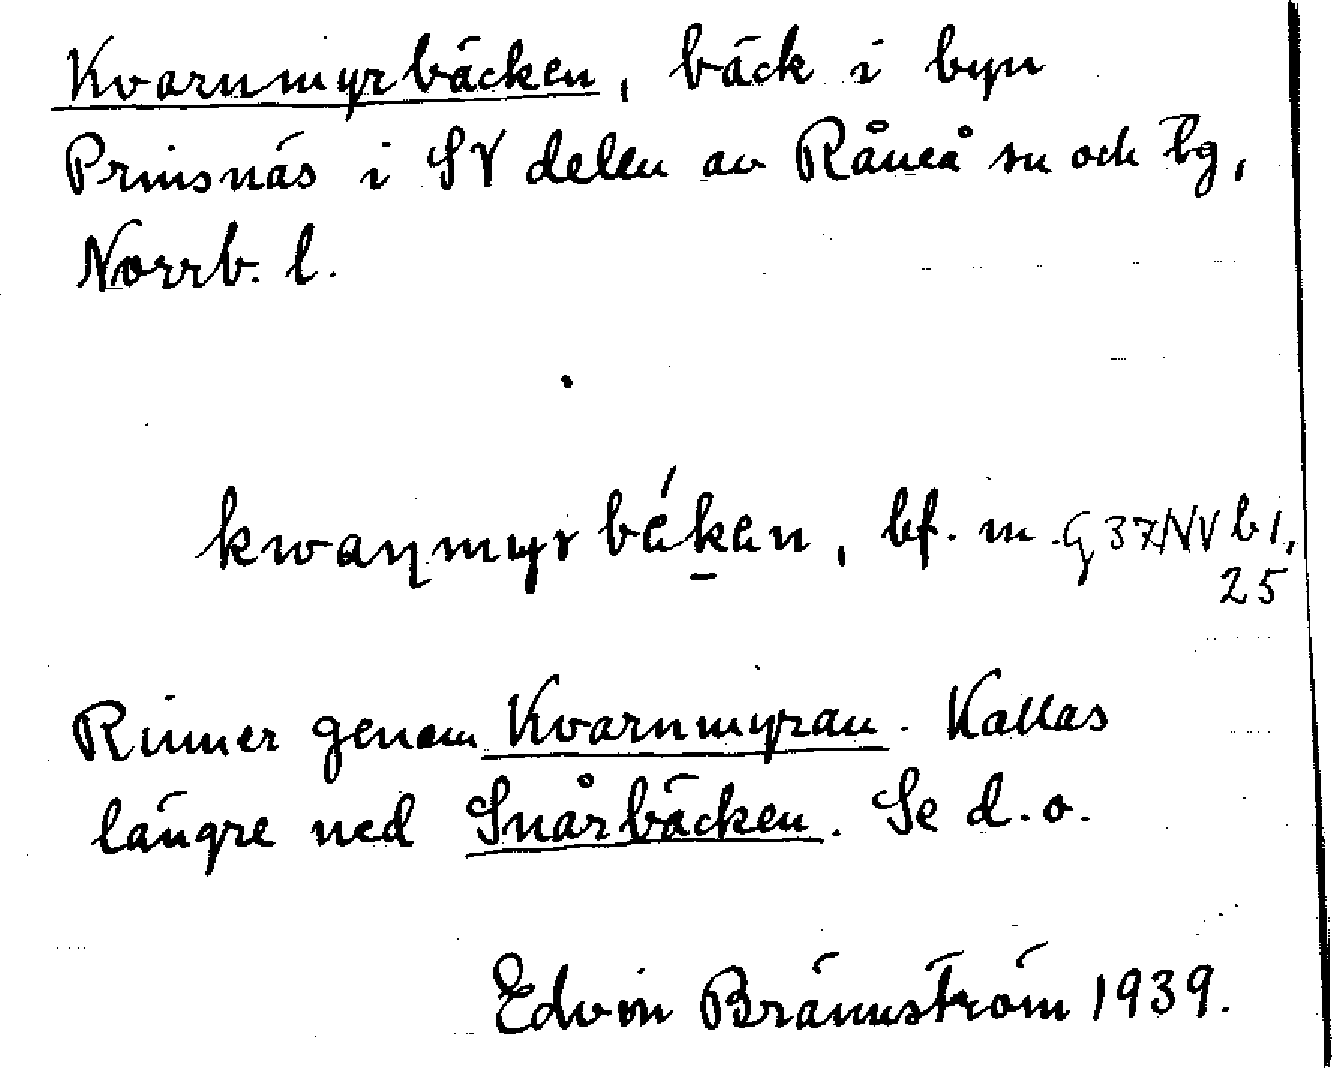 Kvarnmyrbäcken, bäck i byn
Prinsnäs i SV delen av Råneå sn och tg,
Norrb. l.
kwaɳmyrbékan, bf. m. G 37 NV b 1,
25
Rinner genom Kvarnmyran. Kallas
längre ned Snårbäcken. Se d. o.
Edvin Brännström 1939.